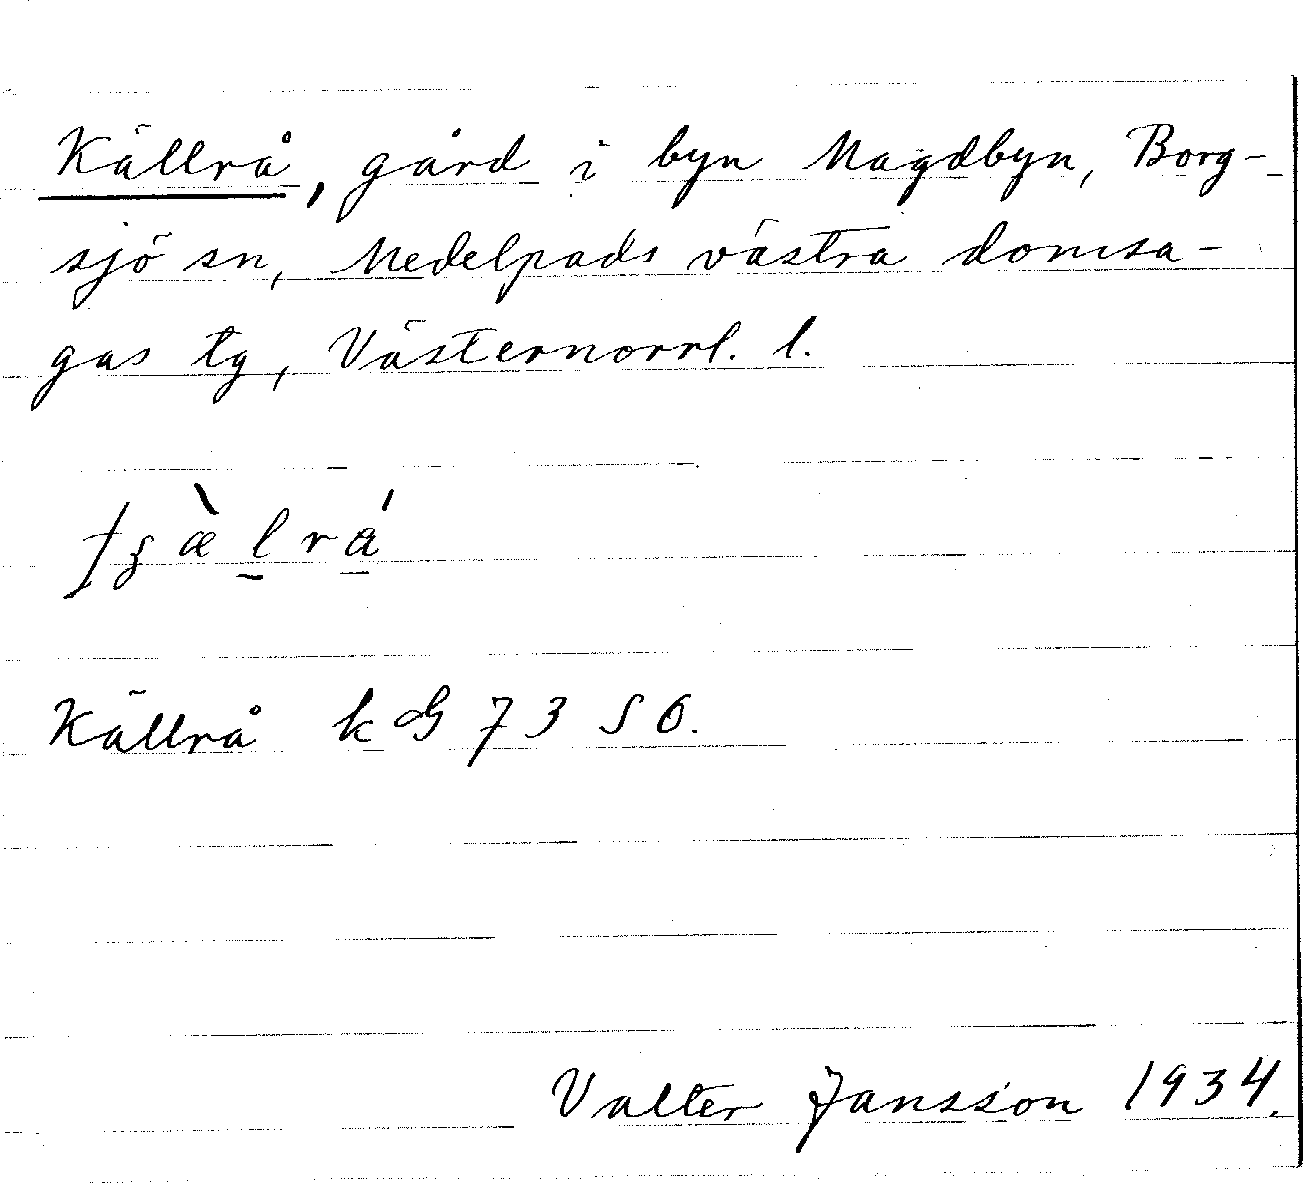 Källrå, gård i byn Magdbyn, Borg-
sjö sn, Medelpads västra domsa-
gas tg, Västernorrl. l.
Källrå k G 73 S 6.
Valter Jansson 1934.